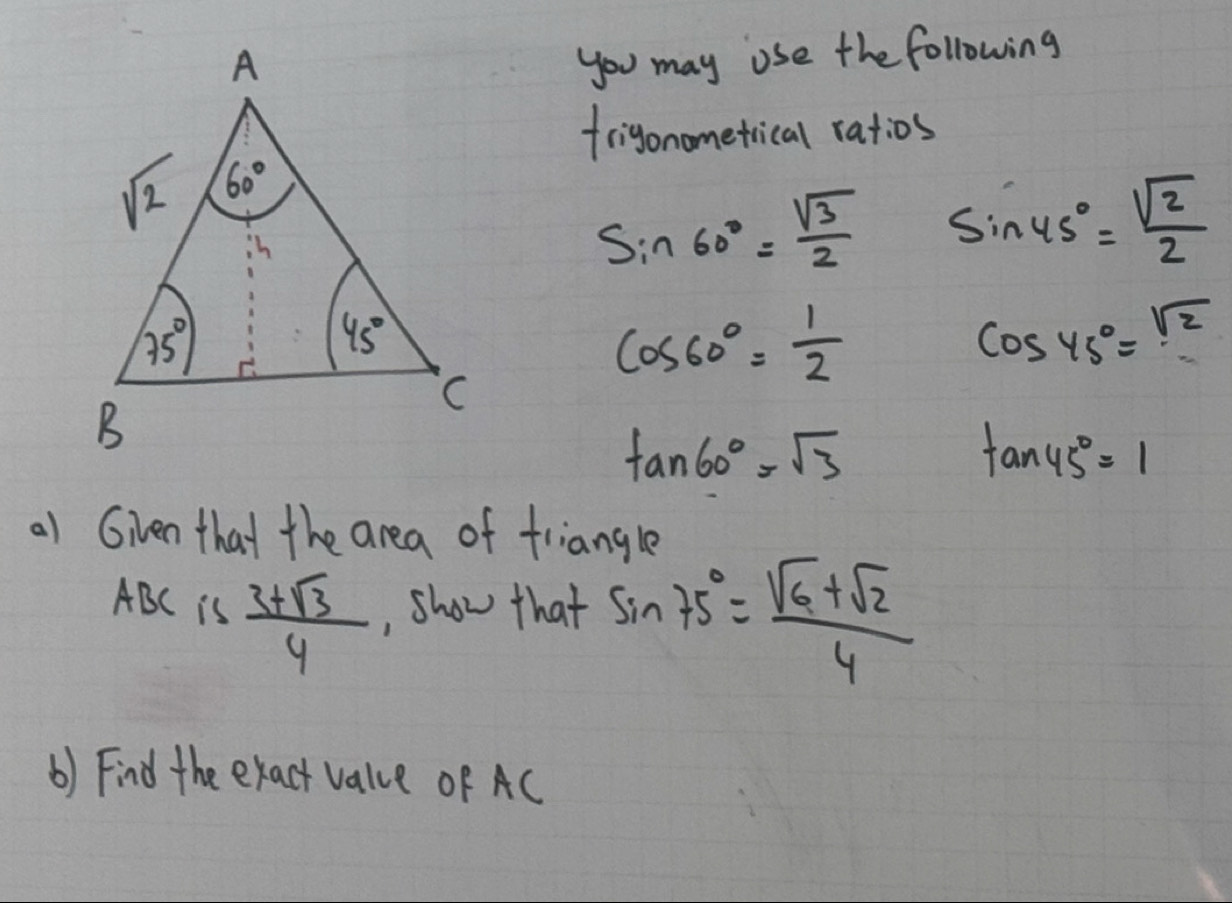 A
√2
60°
h
75°
45°
B
C
You may use the following
trigonometrical ratios
Sin 60° = √3/2
Sin 45° = √2/2
Cos 60° = 1/2
Cos 45° = √2
tan 60° = √3
tan 45° = 1
a) Given that the area of triangle
ABC is 3+√3/4, show that Sin 75° = √6+√2/4
b) Find the exact value of AC